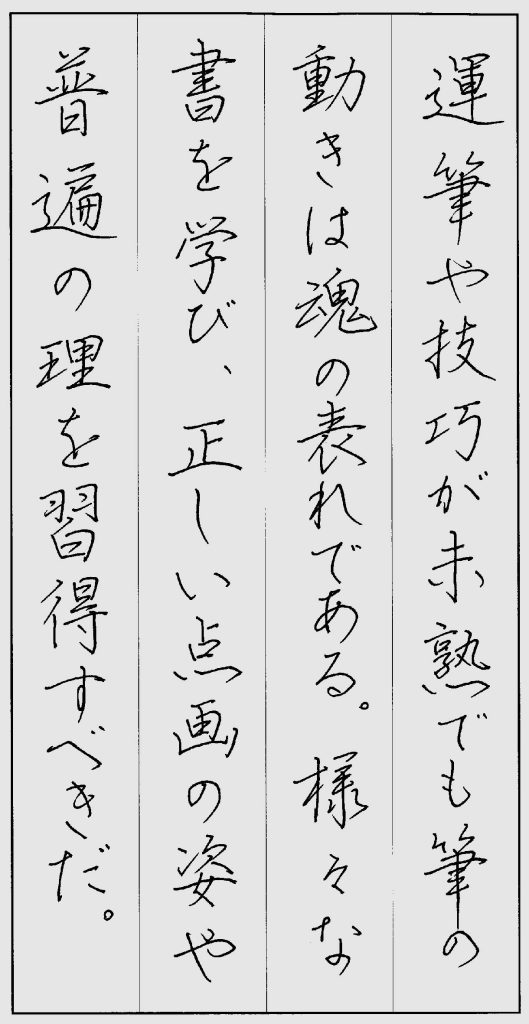 運筆や技巧が未熟でも筆の
動きは魂の表れである。様々な
書を学び、正しい点画の姿や
普遍の理を習得すべきだ。